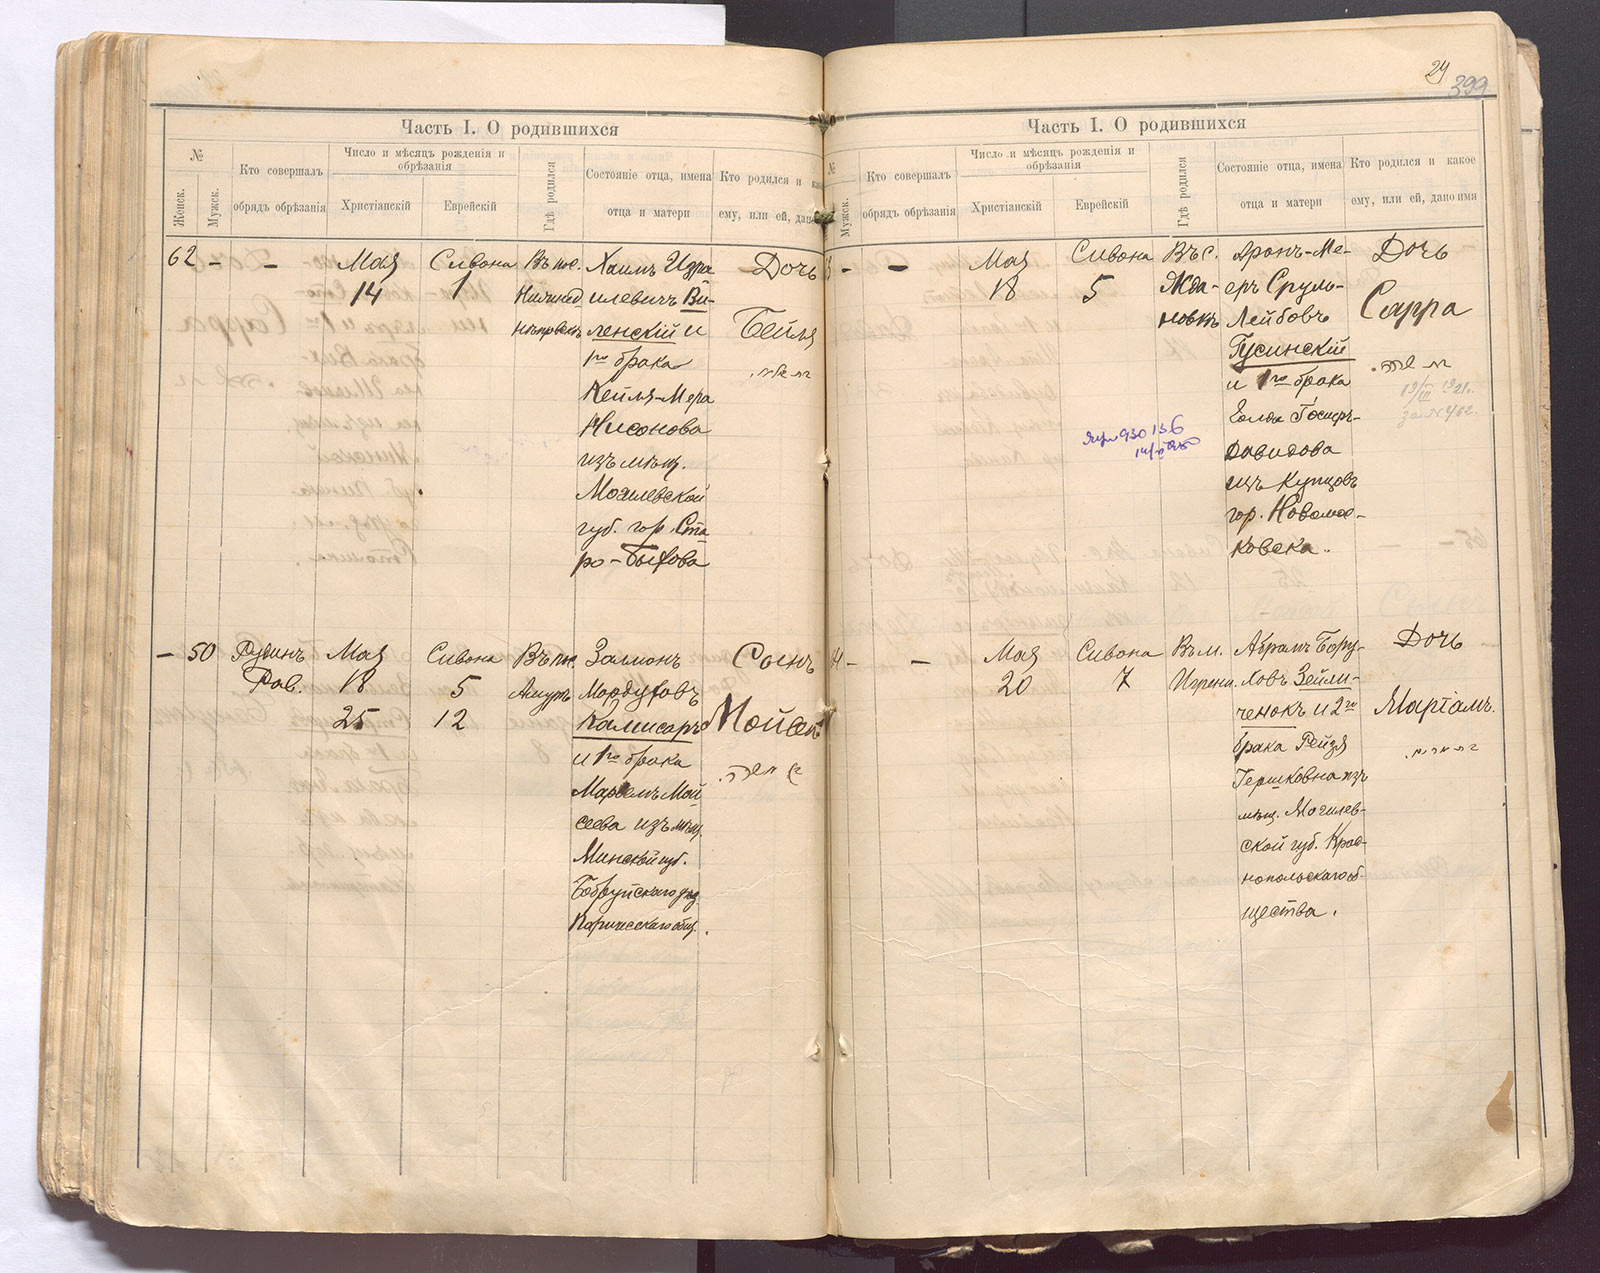 Часть I. О родившихся
№
Женск.
Мужск.
Кто совершалъ
обрядъ обрѣзанія
Число и мѣсяцъ рожденія и
обрѣзанія
Христіанскій
Еврейскій
Гдѣ родился
Состояніе отца, имена
отца и матери
Кто родился и како
ему, или ей, дано
62 – –
Мая
14
Сивона
1
Въ пос.
Хаимъ Изра
илевичъ Ви-
ленскій и
1го брака
Кейля-Мера
Нисонова
изъ мѣщ.
Могилевской
губ. гор. Ста
ро-Быхова
Дочь
Бейля
– 50
Рудинъ
Рав.
Мая
18
25
Сивона
5
12
Въ пос.
Амуръ
Залмонъ
Мордуховъ
Комисаръ
и 1го брака
Марьемъ Мой
сеева изъ мѣщ.
Минской губ.
Бобруйскаго уѣз
Паричесскаго общ.
Сынъ
Мойсей
משה
24
399
Часть I. О родившихся
№
Мужск.
Кто совершалъ
обрядъ обрѣзанія
Число и мѣсяцъ рожденія и
обрѣзанія
Христіанскій
Еврейскій
Гдѣ родился
Состояніе отца, имена
отца и матери
Кто родился и какое
ему, или ей, дано имя
– –
Мая
18
Сивона
5
Въ с.
Жда-
новкѣ
Аронъ-Ме-
еръ Сруль-
Лейбовъ
Гусинскій
и 1го брака
Голда
Давидова
изъ Купцовъ
гор. Новомос-
ковска.
Дочь
Сарра
שרה
– –
Мая
20
Сивона
7
Въ м.
Игрени.
Абрамъ Бору-
ховъ Зейли-
ченокъ и 2го
брака Рейзя
Гершковна изъ
мѣщ. Могилев-
ской губ. Крас-
нопольскаго об
щества.
Дочь
Маріамъ.
מרים